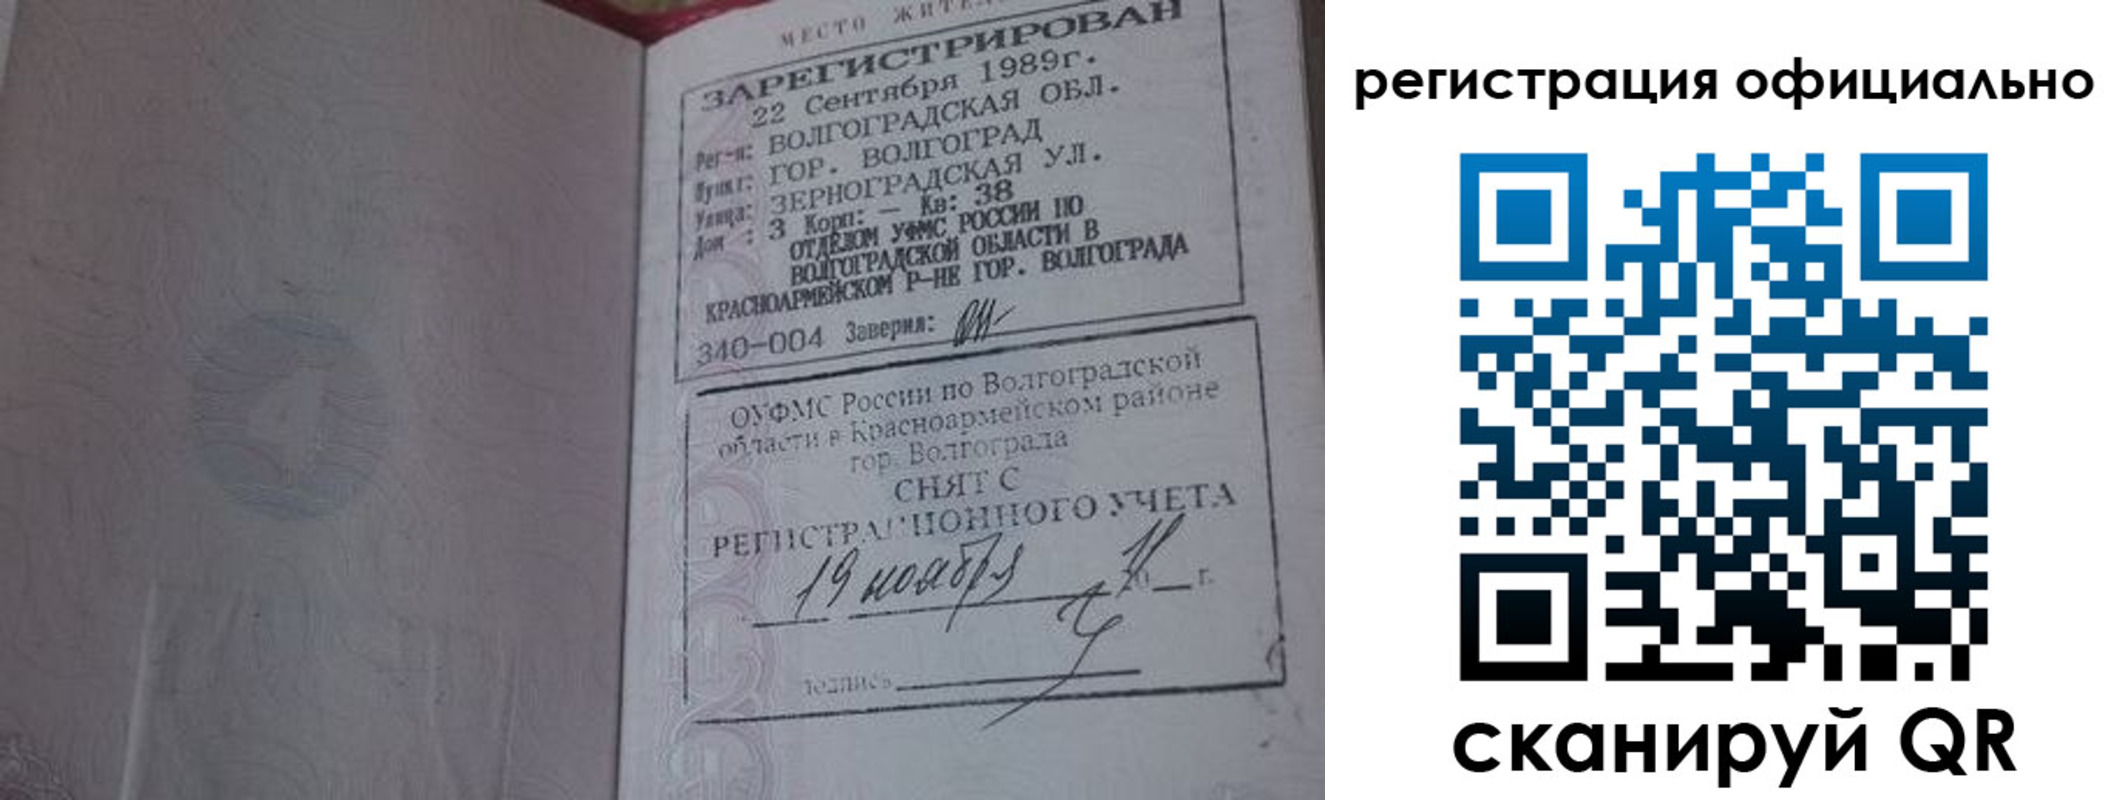 МЕСТО
ЗАРЕГИСТРИРОВАН
22 Сентября 1989г.
Рег-н: ВОЛГОГРАДСКАЯ ОБЛ.
Пункт: ГОР. ВОЛГОГРАД
Улица: ЗЕРНОГРАДСКАЯ УЛ.
Дом : 3 Корп: — Кв: 38
ОТДЕЛОМ УФМС РОССИИ ПО
ВОЛГОГРАДСКОЙ ОБЛАСТИ В
КРАСНОАРМЕЙСКОМ Р-НЕ ГОР. ВОЛГОГРАДА
340-004 Заверил:
ОУФМС России по Волгоградской
области в Красноармейском районе
гор. Волгограда
СНЯТ С
РЕГИСТРАЦИОННОГО УЧЕТА
19 ноября 20 г.
подпись
регистрация официально
сканируй QR